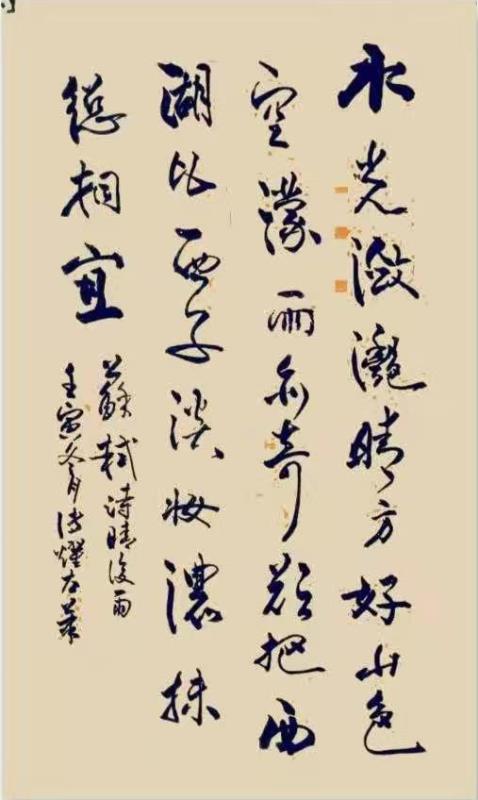 水光潋滟晴方好山色
空濛雨亦奇欲把西
湖比西子淡妆浓抹
總相宜
蘇軾诗晴後雨
壬寅冬月